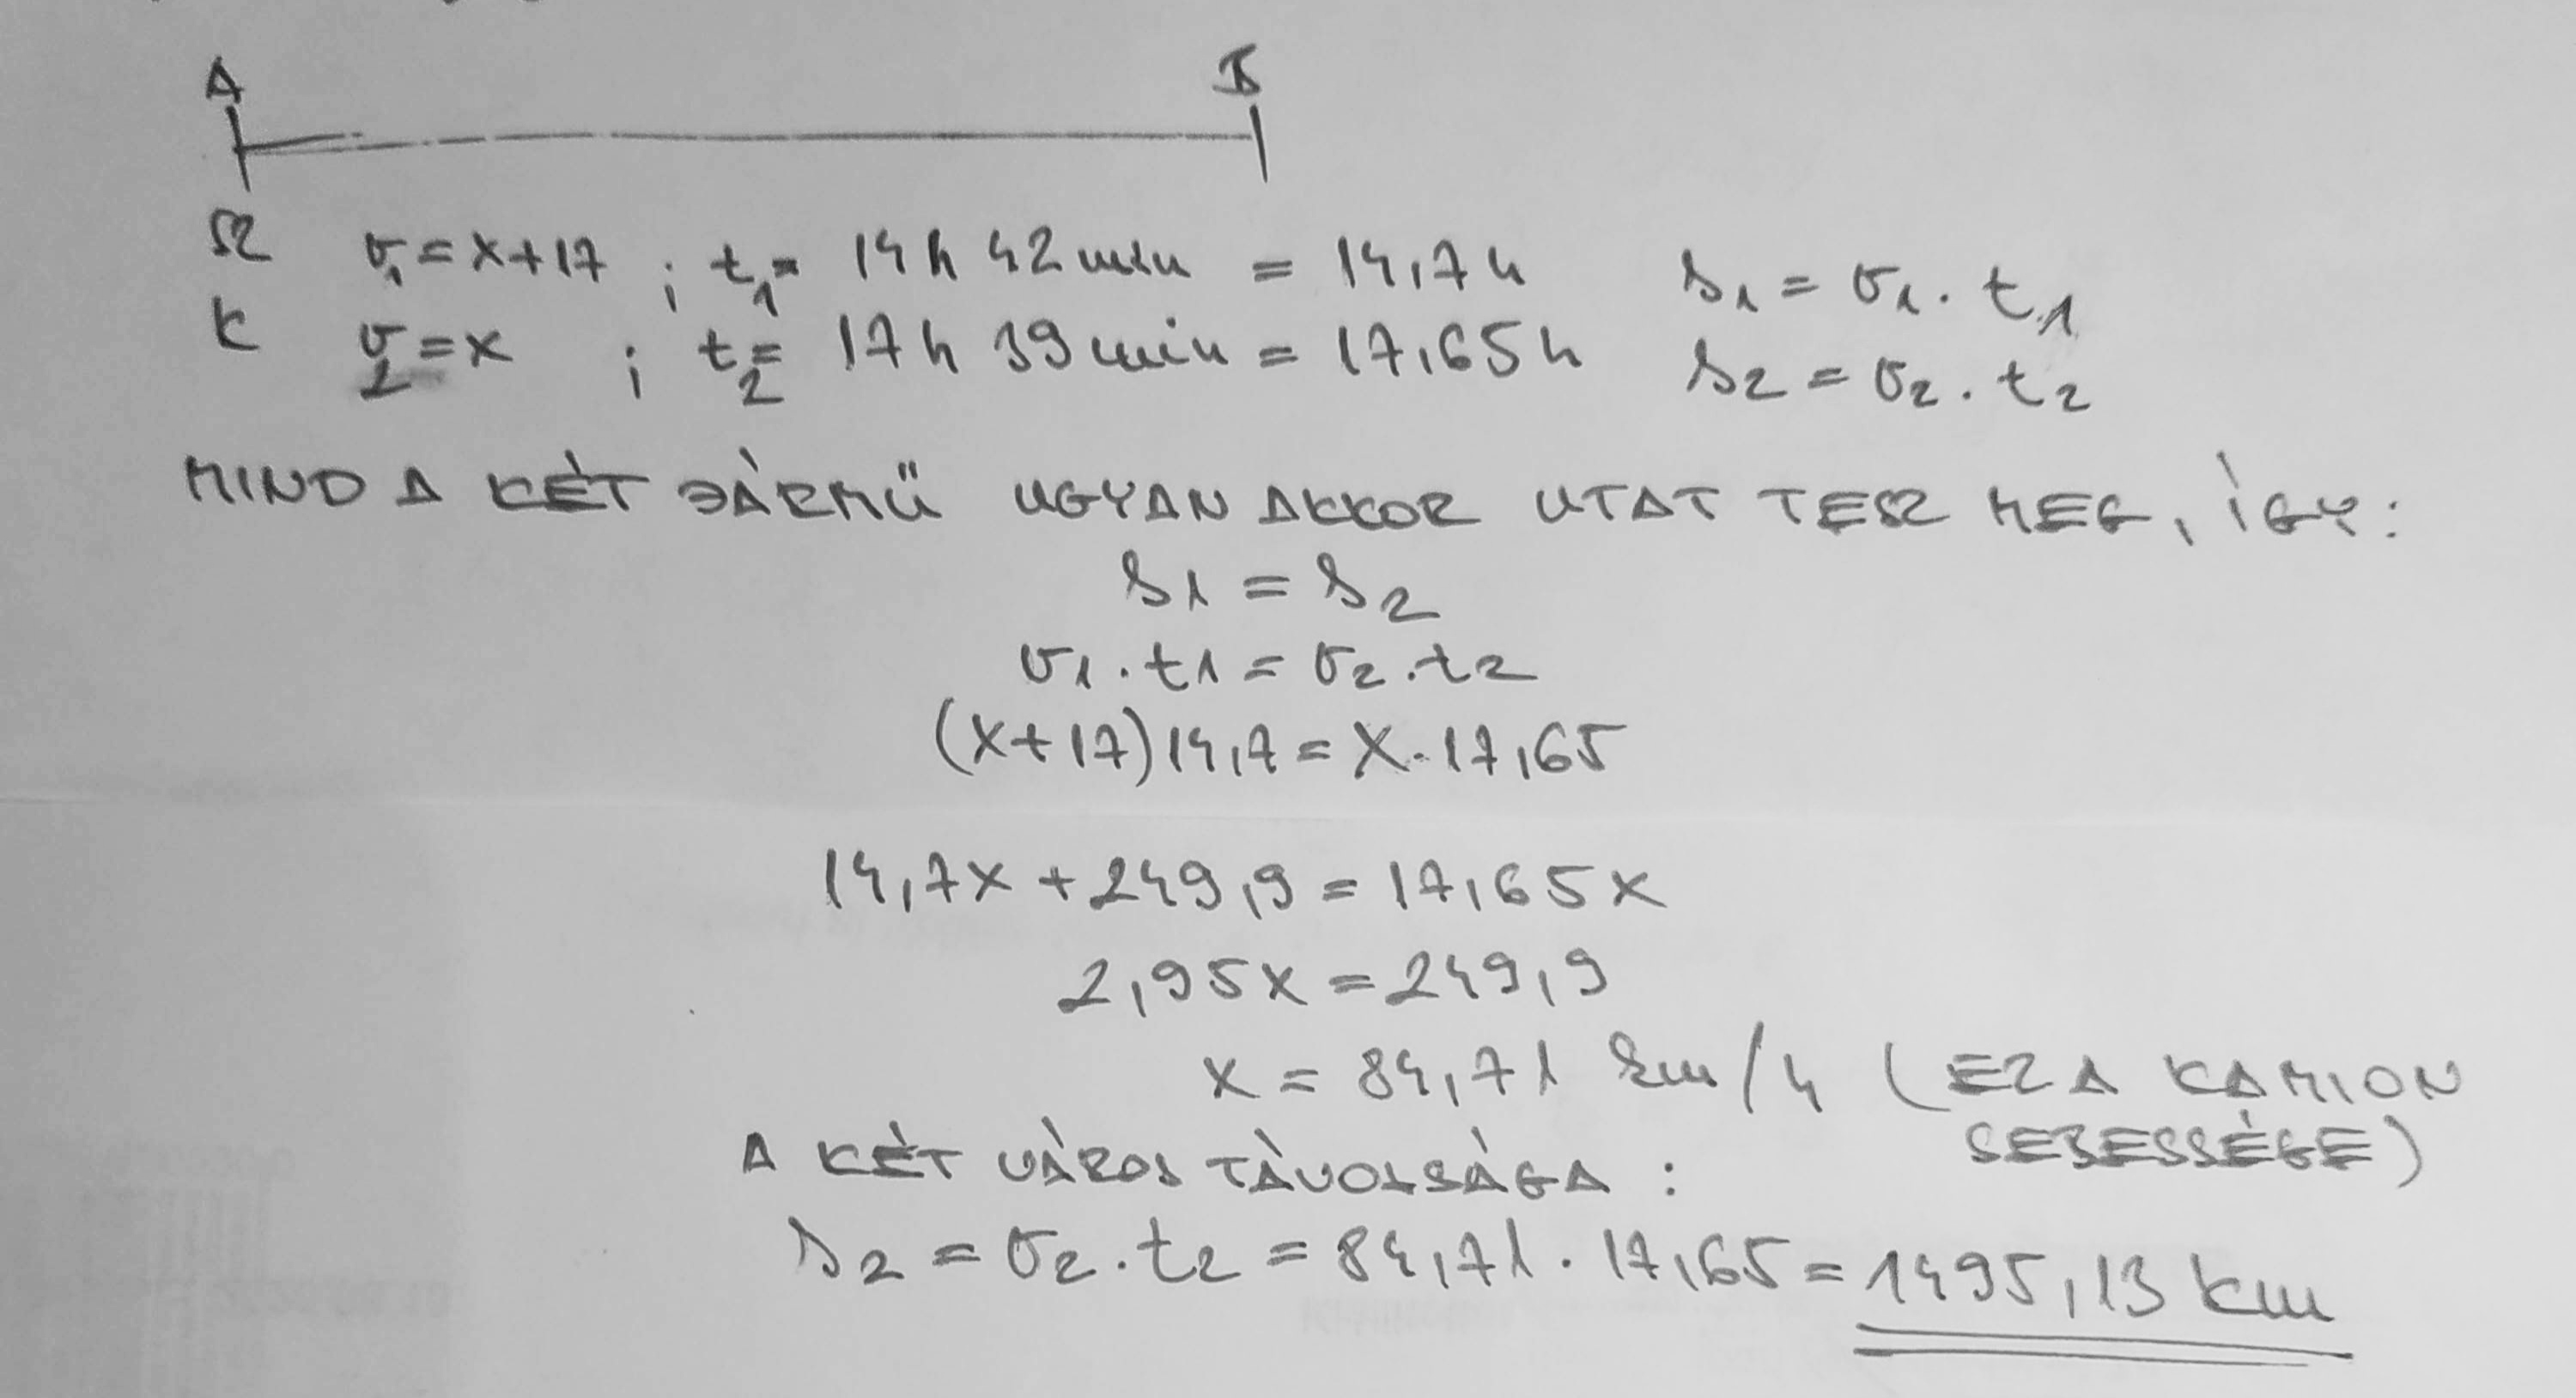 A B
SZ v₁ = x+17 ; t₁ = 14 h 42 min = 14,7 h s₁ = v₁ · t₁
K v₂ = x ; t₂ = 17 h 39 min = 17,65 h s₂ = v₂ · t₂
MIND A KÉT JÁRMŰ UGYAN AKKOR UTAT TESZ MEG, ÍGY:
s₁ = s₂
v₁ · t₁ = v₂ · t₂
(x+17) 14,7 = x · 17,65
14,7x + 249,9 = 17,65x
2,95x = 249,9
x = 84,71 km/h (EZ A KAMION
SEBESSÉGE)
A KÉT VÁROS TÁVOLSÁGA :
s₂ = v₂ · t₂ = 84,71 · 17,65 = 1495,13 km